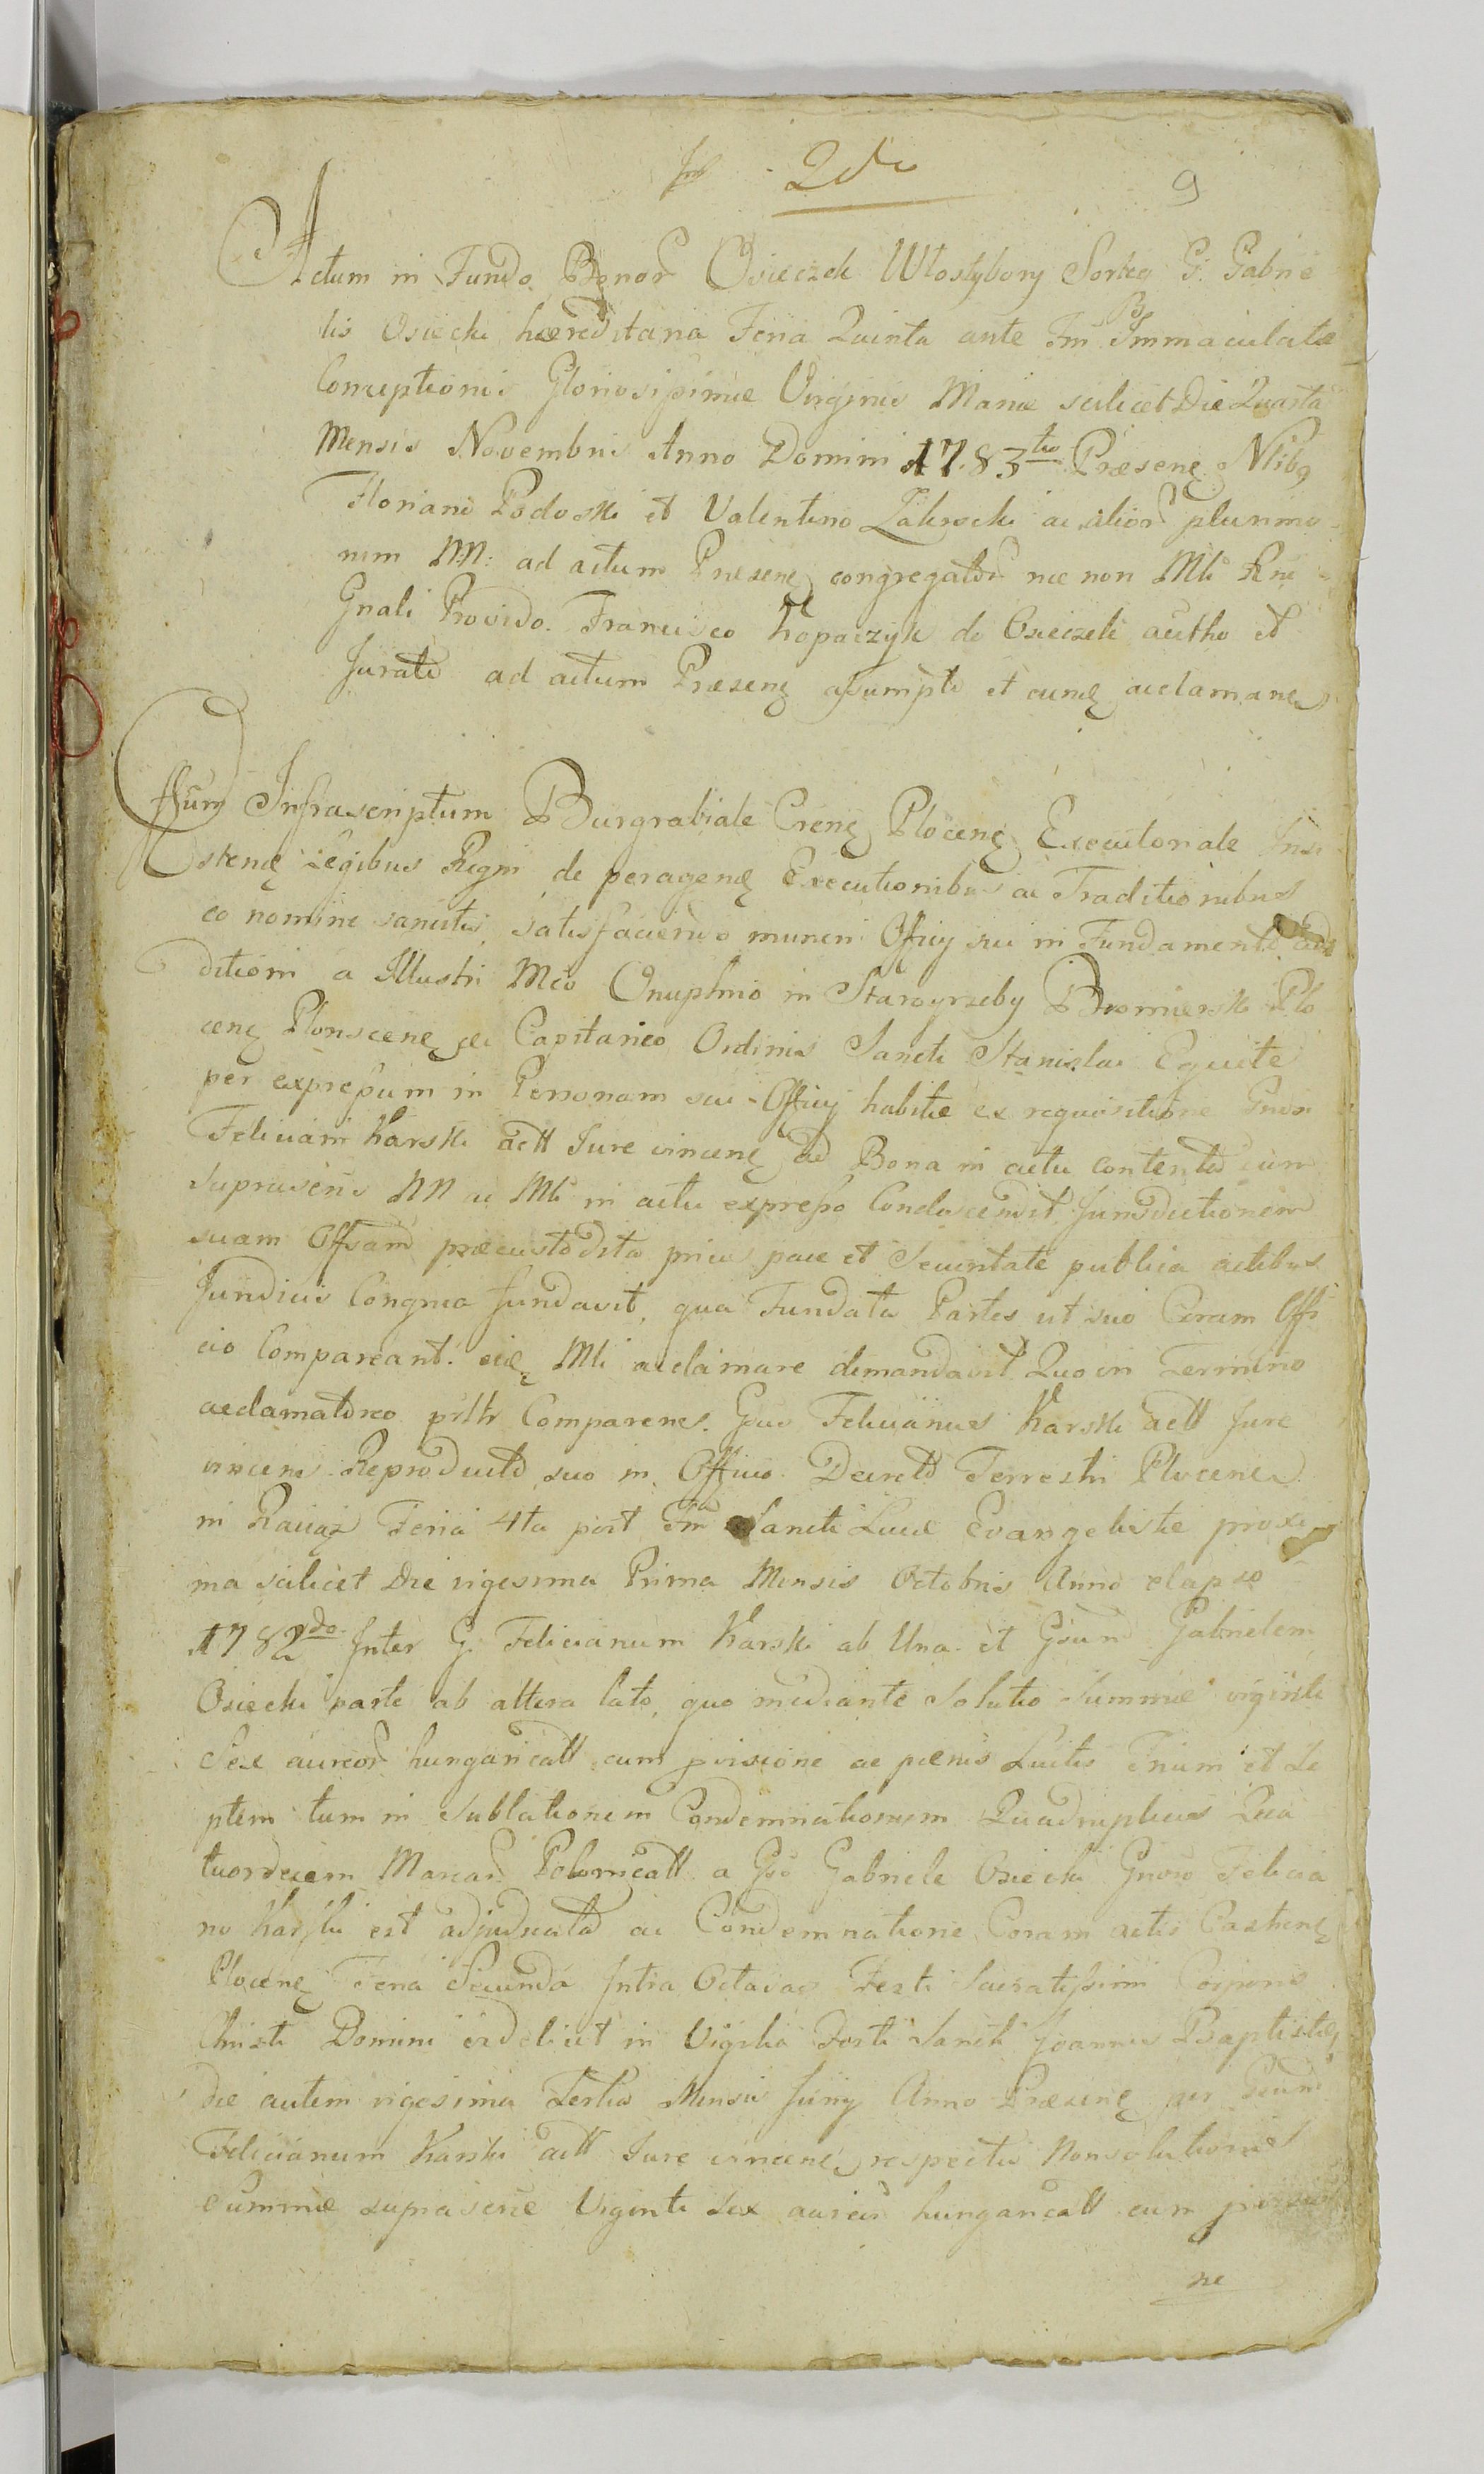 2do
9
Actum in Fundo Bonor Osieczek Włostybory Sortes G: Gabrie
lis Osiecki hæreditaria Feria Quinta ante Fm B Immaculatæ
Conceptionis Gloriosissimæ Virginis Mariæ scilicet Die Quarta
Mensis Novembris Anno Domini 1783tio Præsenę Nlibg
Floriano Podoski et Valentino Zakrocki ac alior plurimo
rum NN: ad actum Præsenę congregator nec non Mli Rni
Gnali Provido Francisco Kopaczyk de Osieczek autho et
Jurato ad actum Præsenę assumpto et eundę acclamanę
Offium Infrascriptum Burgrabiale Crenę Plocenę Executoriale Insi
stendę Legibus Regni de peragendę Executionibus ac Traditionibus
eo nomine sancitis satisfaciendo muneri Officy sui in Fundamento
ditioni a Illustri Mco Onuphrio in Starogrzeby Bromierski Plo
cenę Plonscenę Capitaneo Ordinis Sancti Stanislai Equite
per expressum in Personam sui Officy habitæ ex requisitione Gnosi
Feliciani Karski actt Jure vincenę ad Bona in actu contenta cum
suprascris NN ac Mli in actu expresso Condescendit Jurisdictionem
suam Offsam præcustodita prius pace et Securitate publica actibus
Juridicis Congrua fundavit, qua Fundata Partes ut suo Coram Offi
cio Compareant. eidę Mli acclamare demandavit Quo in Termino
acclamatoreo prltr Comparens. Gsus Felicianus Karski actt Jure
vincens Reproducto suo in Officio Decreto Terrestri Plocenę
in Raciąz Feria 4ta post Fm Sancti Lucæ Evangelistæ proxi
ma scilicet Die vigesima Prima Mensis Octobris Anno elapso
1782do Inter G: Felicianum Karski ab Una et Gsum Gabrielem
Osiecki parte ab altera lato, quo mediante Solutio Summæ viginti
Sex aureor hungaricall cum pvisione ac pœnis Luitis Trium et Se
ptem tum in Sublationem Condemnationum Quadruplicis Qua
tuordecim Marcar Polonicall a Gso Gabriele Osiecki Gnoso Felicia
no Karski est adjudicata ac Condemnatione Coram actis Castrenę
Plocenę Feria Secunda Intra Octavas Festi Sacratissimi Corporis
Christi Domini videlicet in Vigilia Festi Sancti Joannis Baptistæ,
die autem vigesima Tertia Mensis Juny Anno Præsenę per Gsum
Felicianum Karski actt Jure vincenę respectu Nonsolutionis
Summæ suprascræ Viginti Sex aureor hungaricall cum pvisio
ne